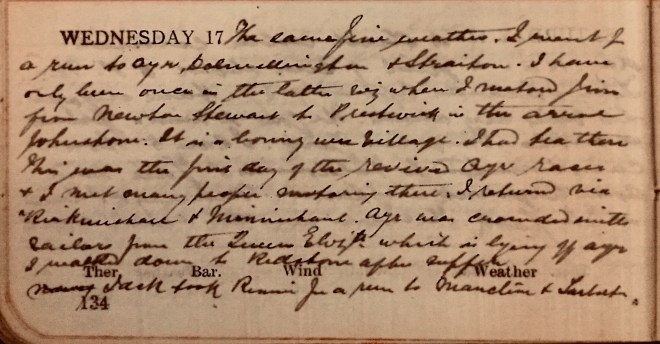 WEDNESDAY 17 The same fine weather. I went for
a run to Ayr, Dalmellington & Straiton. I have
only been once in the latter viz when I motored from
from Newton Stewart to Prestwick in the arrol
Johnston. It is a boring wee village. I had tea there
This was the first day of the revived Ayr races
& I met many people motoring there. I returned via
Kirkmichael & Monishant. Ayr was crowded with
sailors from the Queen Elizth which is lying off Ayr
I walked down to Redstone after supper
Ther. Bar. Wind Weather
Jack took Rennie for a run to Mauchline & Tarbolton
134